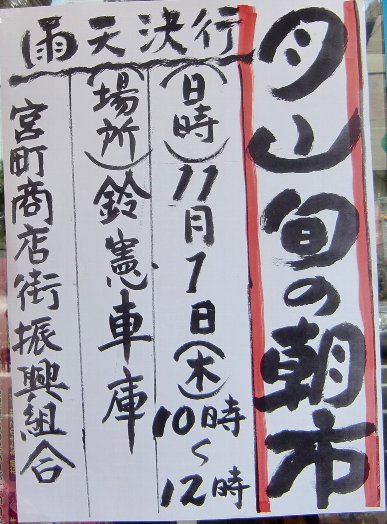 月山旬の朝市
雨天決行
(日時)11月1日(木)10時〜12時
(場所)鈴憲車庫
宮町商店街振興組合